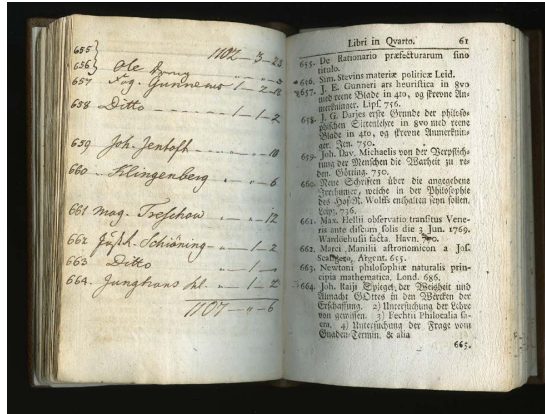 1102 — 3 — 23
655}
656} Ole
657 Gunnerus — 1 — 2 — 18
658 Ditto — „ — 1 — 2
659 Joh. — „ — „ — 10
660 — Klingenberg „ — „ — 6
661 Mag. Treschow „ — „ — 12
662 Schiöning — „ — 1 — 2
663 Ditto „ — 1 —
664. Junghans — „ 1 —
1107 — „ — 6
Libri in Qvarto. 61
655. De Rationario præfecturarum sino
titulo.
656. Sim. Stevins materiæ politicæ Leid.
657. J. E. Gunneri ars heuristica in 8vo
med reene Blade in 4to, og skrevne An-
merkninger. Lips. 756.
658. J. G. Darjes erste Gründe der philoso-
phischen Sittenlehre in 8vo med reene
Blade in 4to, og skrevne Anmerknin-
ger. Jen. 750.
659. Joh. Dav. Michaelis von der Verpflich-
tung der Menschen die Warheit zu re-
den. Götting. 750.
660. Neue Schriften über die angegebene
Irrthümer, welche in der Philosophie
des Hof R. Wolffs enthalten seyn sollen.
Leipz. 736.
661. Max. Hellii observatio transitus Vene-
ris ante discum solis die 3 Jun. 1769.
Wardoehusii facta. Havn. 770.
662. Marci Manilii astronomicon a Jos.
Scaligero, Argent. 655.
663. Newtoni philosophiæ naturalis prin-
cipia mathematica, Lond. 686.
664. Joh. Raiji Spiegel der Weisheit und
Allmacht GOttes in den Wercken der
Erschaffung. 2) Untersuchung der Lehre
von gewissen. 3) Fechtii Philocalia sa-
cra. 4) Untersuchung der Frage vom
Gnaden-Termin. & alia
665.